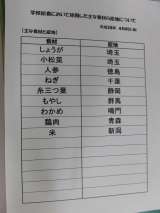 学校給食において使用した主な食材の産地について
【主な食材と産地】
食材 産地
しょうが 埼玉
小松菜 埼玉
人参 徳島
ねぎ 千葉
糸三つ葉 静岡
もやし 群馬
わかめ 鳴門
鶏肉 青森
米 新潟